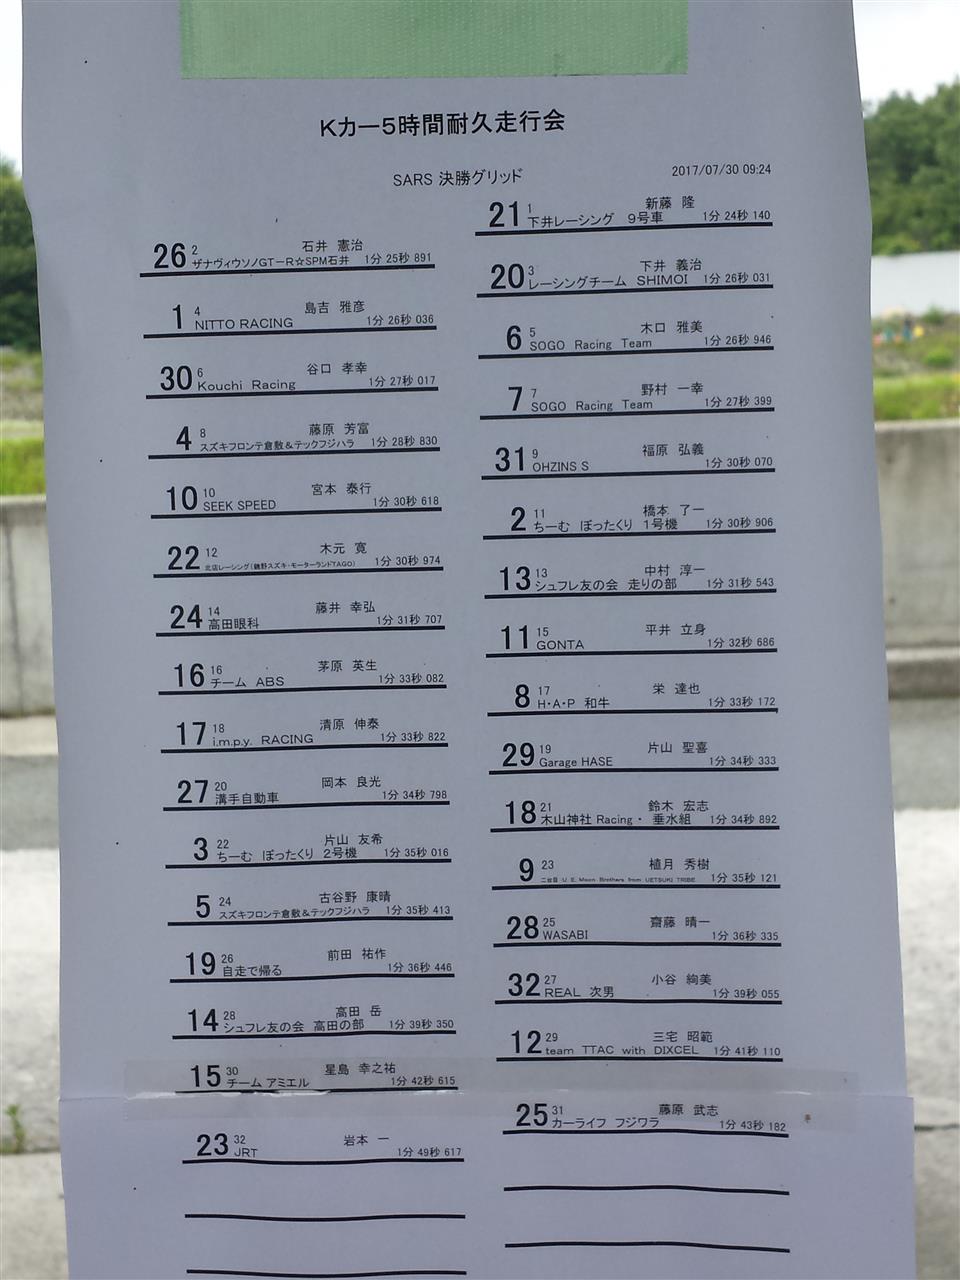 Kカー5時間耐久走行会
SARS 決勝グリッド
2017/07/30 09:24
21 1 新藤 隆
下井レーシング 9号車 1分 24秒 140
26 2 石井 憲治
ザナヴィウソノGT-R☆SPM石井 1分 25秒 891
20 3 下井 義治
レーシングチーム SHIMOI 1分 26秒 031
1 4 島吉 雅彦
NITTO RACING 1分 26秒 036
6 5 木口 雅美
SOGO Racing Team 1分 26秒 946
30 6 谷口 孝幸
Kouchi Racing 1分 27秒 017
7 7 野村 一幸
SOGO Racing Team 1分 27秒 399
4 8 藤原 芳富
スズキフロンテ倉敷&テックフジハラ 1分 28秒 830
31 9 福原 弘義
OHZINS S 1分 30秒 070
10 10 宮本 泰行
SEEK SPEED 1分 30秒 618
2 11 橋本 了一
ちーむ ぼったくり 1号機 1分 30秒 906
22 12 木元 寛
北店レーシング(鏡野スズキ・モーターランドTAGO) 1分 30秒 974
13 13 中村 淳一
シュフレ友の会 走りの部 1分 31秒 543
24 14 藤井 幸弘
高田眼科 1分 31秒 707
11 15 平井 立身
GONTA 1分 32秒 686
16 16 茅原 英生
チーム ABS 1分 33秒 082
8 17 栄 達也
H・A・P 和牛 1分 33秒 172
17 18 清原 伸泰
i.m.p.y. RACING 1分 33秒 822
29 19 片山 聖喜
Garage HASE 1分 34秒 333
27 20 岡本 良光
溝手自動車 1分 34秒 798
18 21 鈴木 宏志
木山神社 Racing・ 垂水組 1分 34秒 892
3 22 片山 友希
ちーむ ぼったくり 2号機 1分 35秒 016
9 23 植月 秀樹
二台目 U. E. Moon Brothers from UETSUKI TRIBE 1分 35秒 121
5 24 古谷野 康晴
スズキフロンテ倉敷&テックフジハラ 1分 35秒 413
28 25 齋藤 晴一
WASABI 1分 36秒 335
19 26 前田 祐作
自走で帰る 1分 36秒 446
32 27 小谷 絢美
REAL 次男 1分 39秒 055
14 28 高田 岳
シュフレ友の会 高田の部 1分 39秒 350
12 29 三宅 昭範
team TTAC with DIXCEL 1分 41秒 110
15 30 星島 幸之祐
チーム アミエル 1分 42秒 615
25 31 藤原 武志
カーライフ フジワラ 1分 43秒 182
23 32 岩本 一
JRT 1分 49秒 617